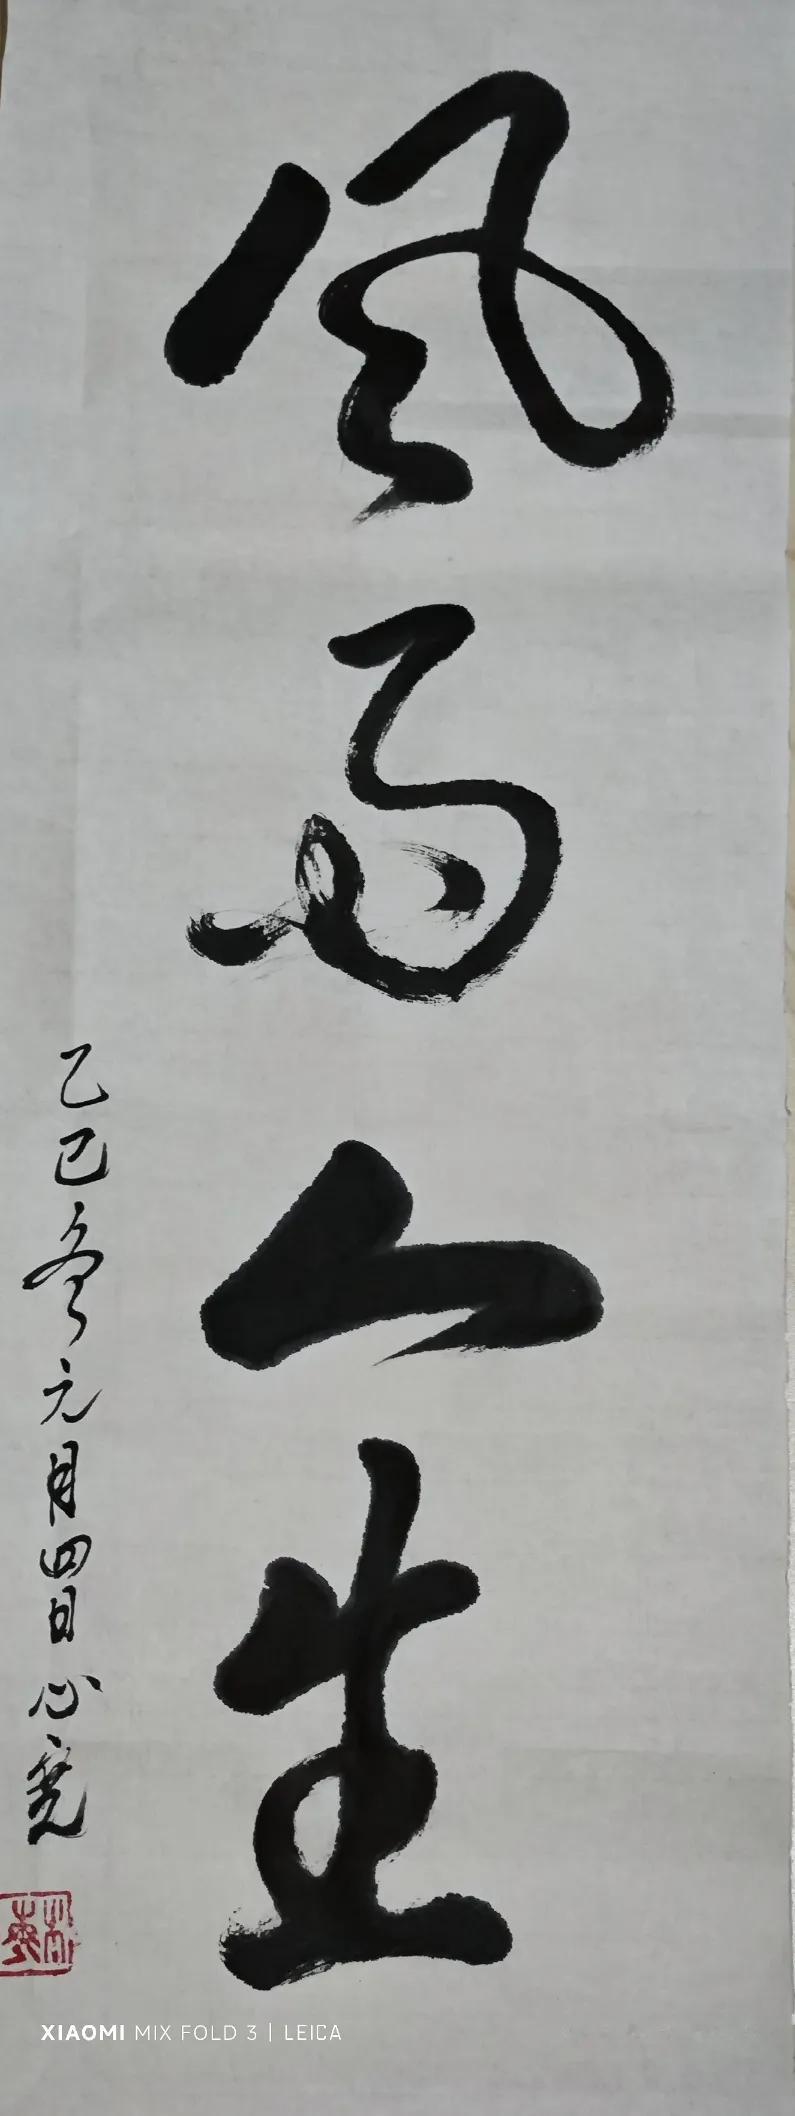 风雨人生
乙巳冬元月四日心尧
XIAOMI MIX FOLD 3 | LEICA